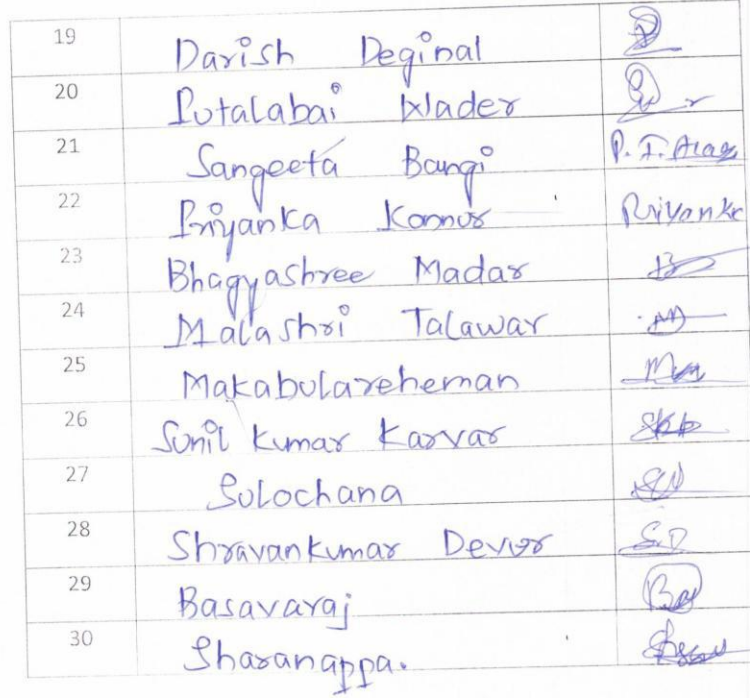 19 Darish Deginal
20 Putalabai Wader
21 Sangeeta Bangi P. I.
22 Priyanka Konnur Priyanka
23 Bhagyashree Madar
24 Malashri Talawar
25 Makabulareheman
26 Sunil Kumar Karvar
27 Sulochana
28 Shravankumar Devur S.D
29 Basavaraj
30 Sharanappa.